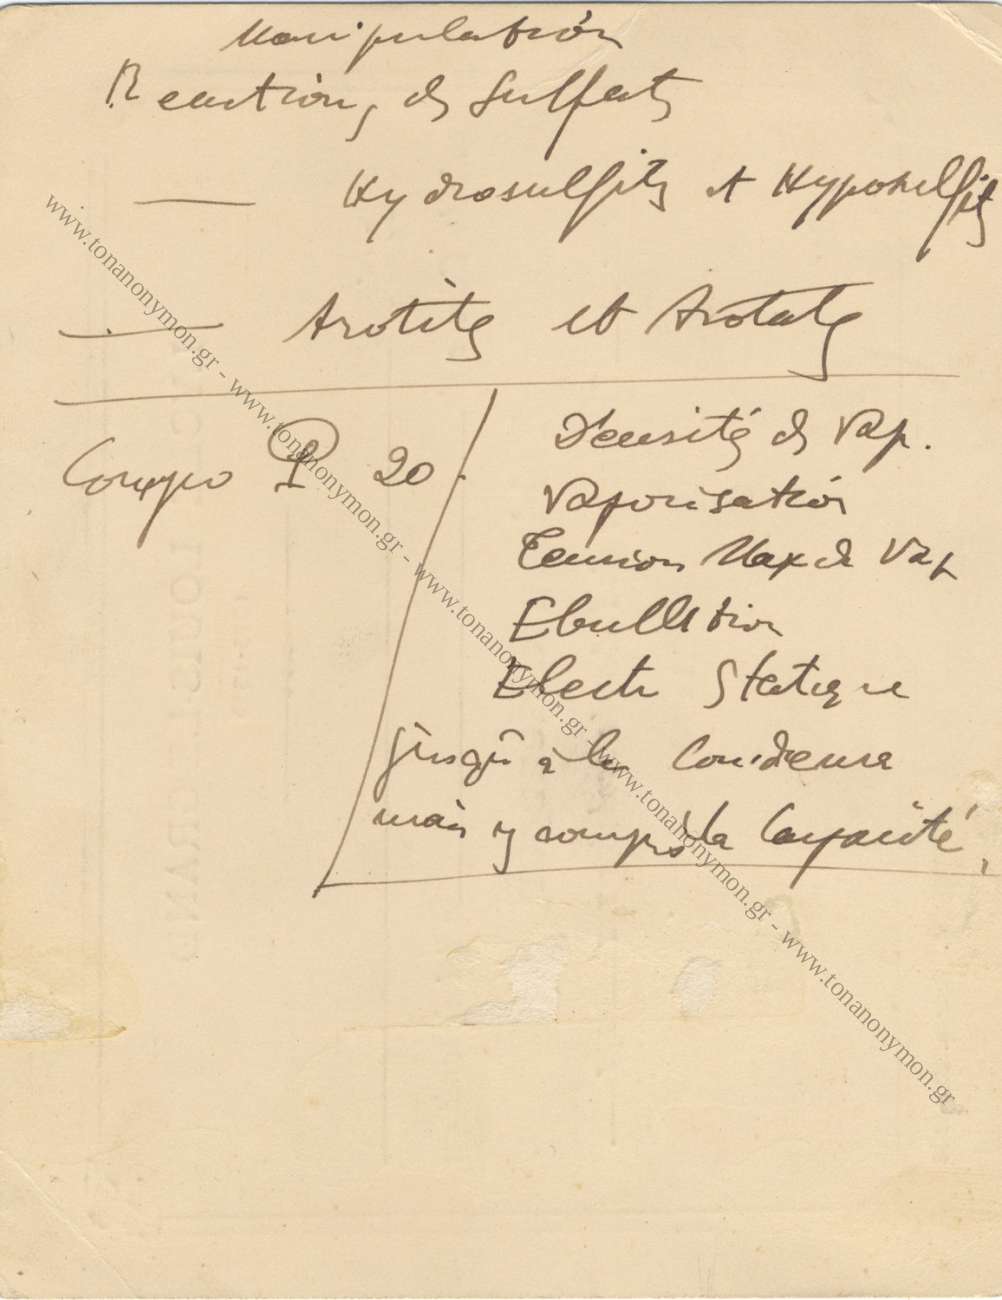 Manipulation
Reactions ds Sulfats
— Hydrosulfits et Hypoisulfits
— Azotits et Azotats
Compo P 20.
Densité ds Vap.
Vaporisation
Tension Max de Vap
Ebullition
Electr Statique
jusqu'à la Condensa
mais y compris la Capacité.
www.tonanonymon.gr - www.tonanonymon.gr - www.tonanonymon.gr - www.tonanonymon.gr - www.tonanonymon.gr